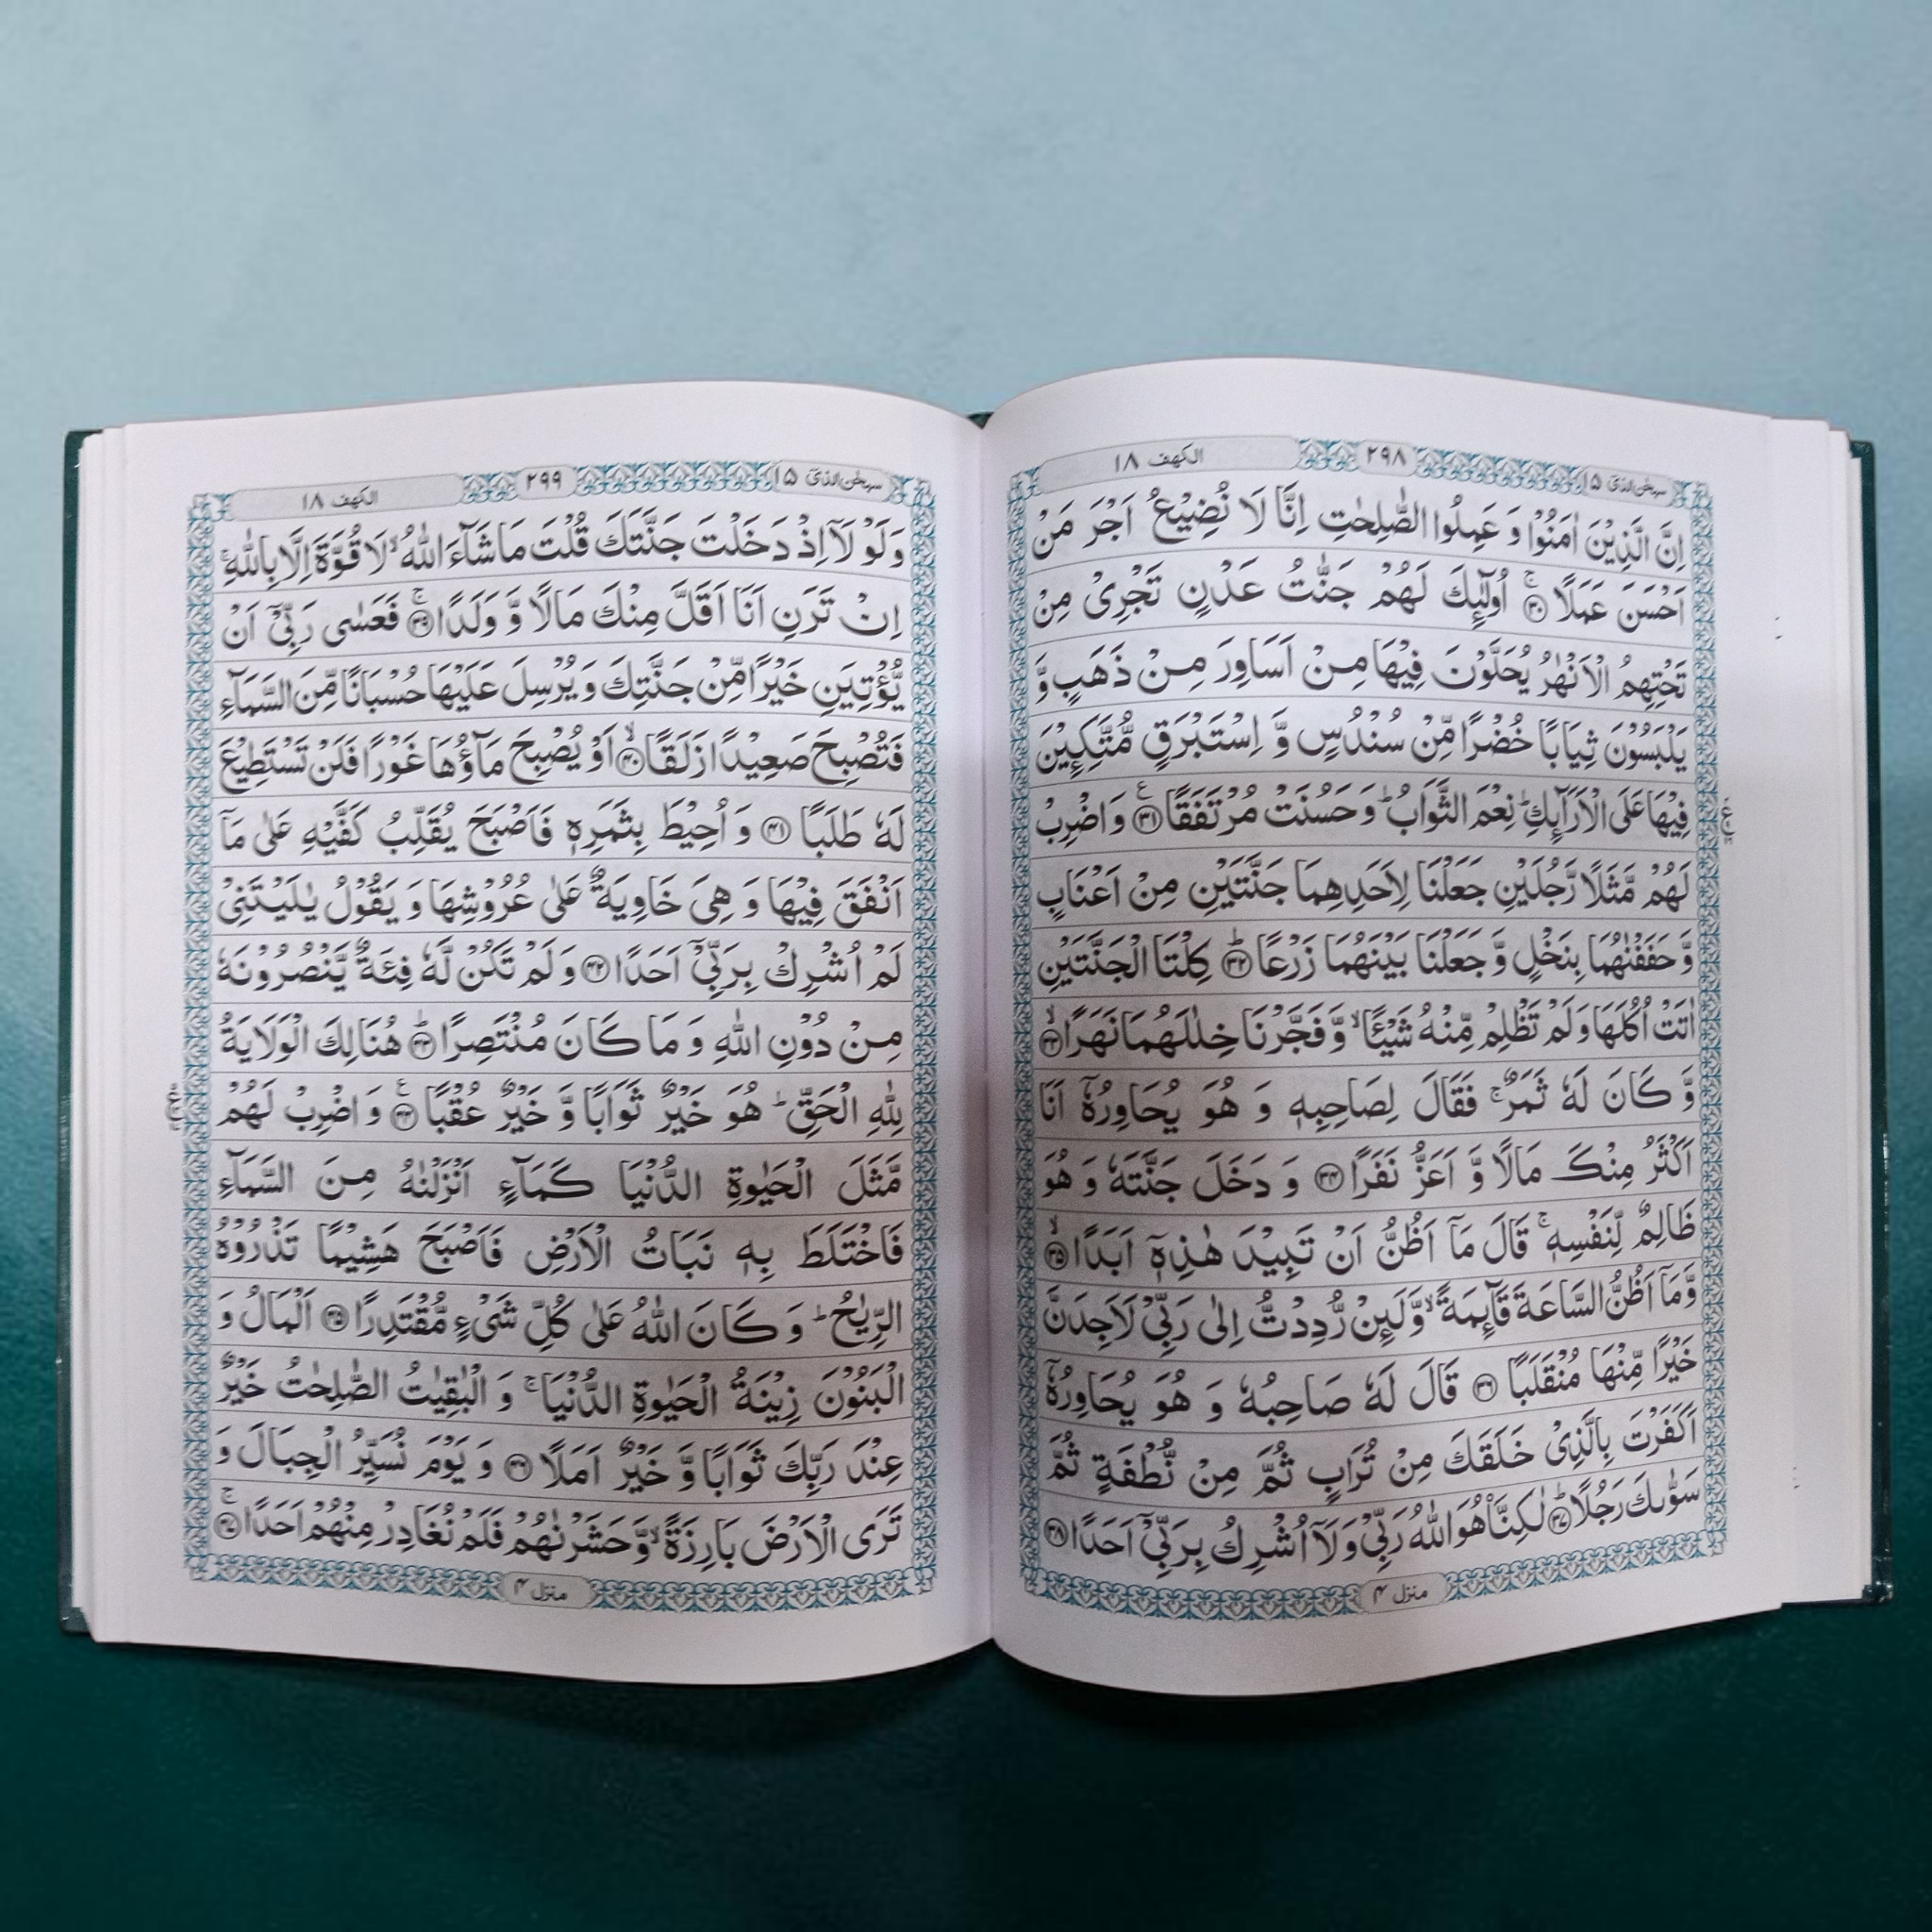 سبحٰن الذیٓ ۱۵ ۲۹۸ الکهف ۱۸
اِنَّ الَّذِیْنَ اٰمَنُوْا وَ عَمِلُوا الصّٰلِحٰتِ اِنَّا لَا نُضِیْعُ اَجْرَ مَنْ
اَحْسَنَ عَمَلًاۚ ﴿۳۰﴾ اُولٰٓىِٕكَ لَهُمْ جَنّٰتُ عَدْنٍ تَجْرِیْ مِنْ
تَحْتِهِمُ الْاَنْهٰرُ یُحَلَّوْنَ فِیْهَا مِنْ اَسَاوِرَ مِنْ ذَهَبٍ وَّ
یَلْبَسُوْنَ ثِیَابًا خُضْرًا مِّنْ سُنْدُسٍ وَّ اِسْتَبْرَقٍ مُّتَّكِـِٕیْنَ
فِیْهَا عَلَى الْاَرَآىِٕكِؕ نِعْمَ الثَّوَابُؕ وَ حَسُنَتْ مُرْتَفَقًا ﴿۳۱﴾ وَ اضْرِبْ
لَهُمْ مَّثَلًا رَّجُلَیْنِ جَعَلْنَا لِاَحَدِهِمَا جَنَّتَیْنِ مِنْ اَعْنَابٍ
وَّ حَفَفْنٰهُمَا بِنَخْلٍ وَّ جَعَلْنَا بَیْنَهُمَا زَرْعًاؕ ﴿۳۲﴾ كِلْتَا الْجَنَّتَیْنِ
اٰتَتْ اُكُلَهَا وَ لَمْ تَظْلِمْ مِّنْهُ شَیْـًٔاۙ وَّ فَجَّرْنَا خِلٰلَهُمَا نَهَرًاۙ ﴿۳۳﴾
وَّ كَانَ لَهٗ ثَمَرٌۚ فَقَالَ لِصَاحِبِهٖ وَ هُوَ یُحَاوِرُهٗۤ اَنَا
اَكْثَرُ مِنْكَ مَالًا وَّ اَعَزُّ نَفَرًا ﴿۳۴﴾ وَ دَخَلَ جَنَّتَهٗ وَ هُوَ
ظَالِمٌ لِّنَفْسِهٖۚ قَالَ مَاۤ اَظُنُّ اَنْ تَبِیْدَ هٰذِهٖۤ اَبَدًاۙ ﴿۳۵﴾
وَّ مَاۤ اَظُنُّ السَّاعَةَ قَآىِٕمَةًۙ وَّ لَىِٕنْ رُّدِدْتُّ اِلٰى رَبِّیْ لَاَجِدَنَّ
خَیْرًا مِّنْهَا مُنْقَلَبًا ﴿۳۶﴾ قَالَ لَهٗ صَاحِبُهٗ وَ هُوَ یُحَاوِرُهٗۤ
اَكَفَرْتَ بِالَّذِیْ خَلَقَكَ مِنْ تُرَابٍ ثُمَّ مِنْ نُّطْفَةٍ ثُمَّ
سَوّٰىكَ رَجُلًاؕ ﴿۳۷﴾ لٰكِنَّاۡ هُوَ اللّٰهُ رَبِّیْ وَ لَاۤ اُشْرِكُ بِرَبِّیْۤ اَحَدًا ﴿۳۸﴾
منزل ۴
سبحٰن الذیٓ ۱۵ ۲۹۹ الکهف ۱۸
وَ لَوْ لَاۤ اِذْ دَخَلْتَ جَنَّتَكَ قُلْتَ مَا شَآءَ اللّٰهُۙ لَا قُوَّةَ اِلَّا بِاللّٰهِۚ
اِنْ تَرَنِ اَنَا اَقَلَّ مِنْكَ مَالًا وَّ وَلَدًاۚ ﴿۳۹﴾ فَعَسٰى رَبِّیْۤ اَنْ
یُّؤْتِیَنِ خَیْرًا مِّنْ جَنَّتِكَ وَ یُرْسِلَ عَلَیْهَا حُسْبَانًا مِّنَ السَّمَآءِ
فَتُصْبِحَ صَعِیْدًا زَلَقًاۙ ﴿۴۰﴾ اَوْ یُصْبِحَ مَآؤُهَا غَوْرًا فَلَنْ تَسْتَطِیْعَ
لَهٗ طَلَبًا ﴿۴۱﴾ وَ اُحِیْطَ بِثَمَرِهٖ فَاَصْبَحَ یُقَلِّبُ كَفَّیْهِ عَلٰى مَاۤ
اَنْفَقَ فِیْهَا وَ هِیَ خَاوِیَةٌ عَلٰى عُرُوْشِهَا وَ یَقُوْلُ یٰلَیْتَنِیْ
لَمْ اُشْرِكْ بِرَبِّیْۤ اَحَدًا ﴿۴۲﴾ وَ لَمْ تَكُنْ لَّهٗ فِئَةٌ یَّنْصُرُوْنَهٗ
مِنْ دُوْنِ اللّٰهِ وَ مَا كَانَ مُنْتَصِرًاؕ ﴿۴۳﴾ هُنَالِكَ الْوَلَایَةُ
لِلّٰهِ الْحَقِّؕ هُوَ خَیْرٌ ثَوَابًا وَّ خَیْرٌ عُقْبًا ﴿۴۴﴾ وَ اضْرِبْ لَهُمْ
مَّثَلَ الْحَیٰوةِ الدُّنْیَا كَمَآءٍ اَنْزَلْنٰهُ مِنَ السَّمَآءِ
فَاخْتَلَطَ بِهٖ نَبَاتُ الْاَرْضِ فَاَصْبَحَ هَشِیْمًا تَذْرُوْهُ
الرِّیٰحُؕ وَ كَانَ اللّٰهُ عَلٰى كُلِّ شَیْءٍ مُّقْتَدِرًا ﴿۴۵﴾ اَلْمَالُ وَ
الْبَنُوْنَ زِیْنَةُ الْحَیٰوةِ الدُّنْیَاۚ وَ الْبٰقِیٰتُ الصّٰلِحٰتُ خَیْرٌ
عِنْدَ رَبِّكَ ثَوَابًا وَّ خَیْرٌ اَمَلًا ﴿۴۶﴾ وَ یَوْمَ نُسَیِّرُ الْجِبَالَ وَ
تَرَى الْاَرْضَ بَارِزَةًۙ وَّ حَشَرْنٰهُمْ فَلَمْ نُغَادِرْ مِنْهُمْ اَحَدًاۚ ﴿۴۷﴾
منزل ۴